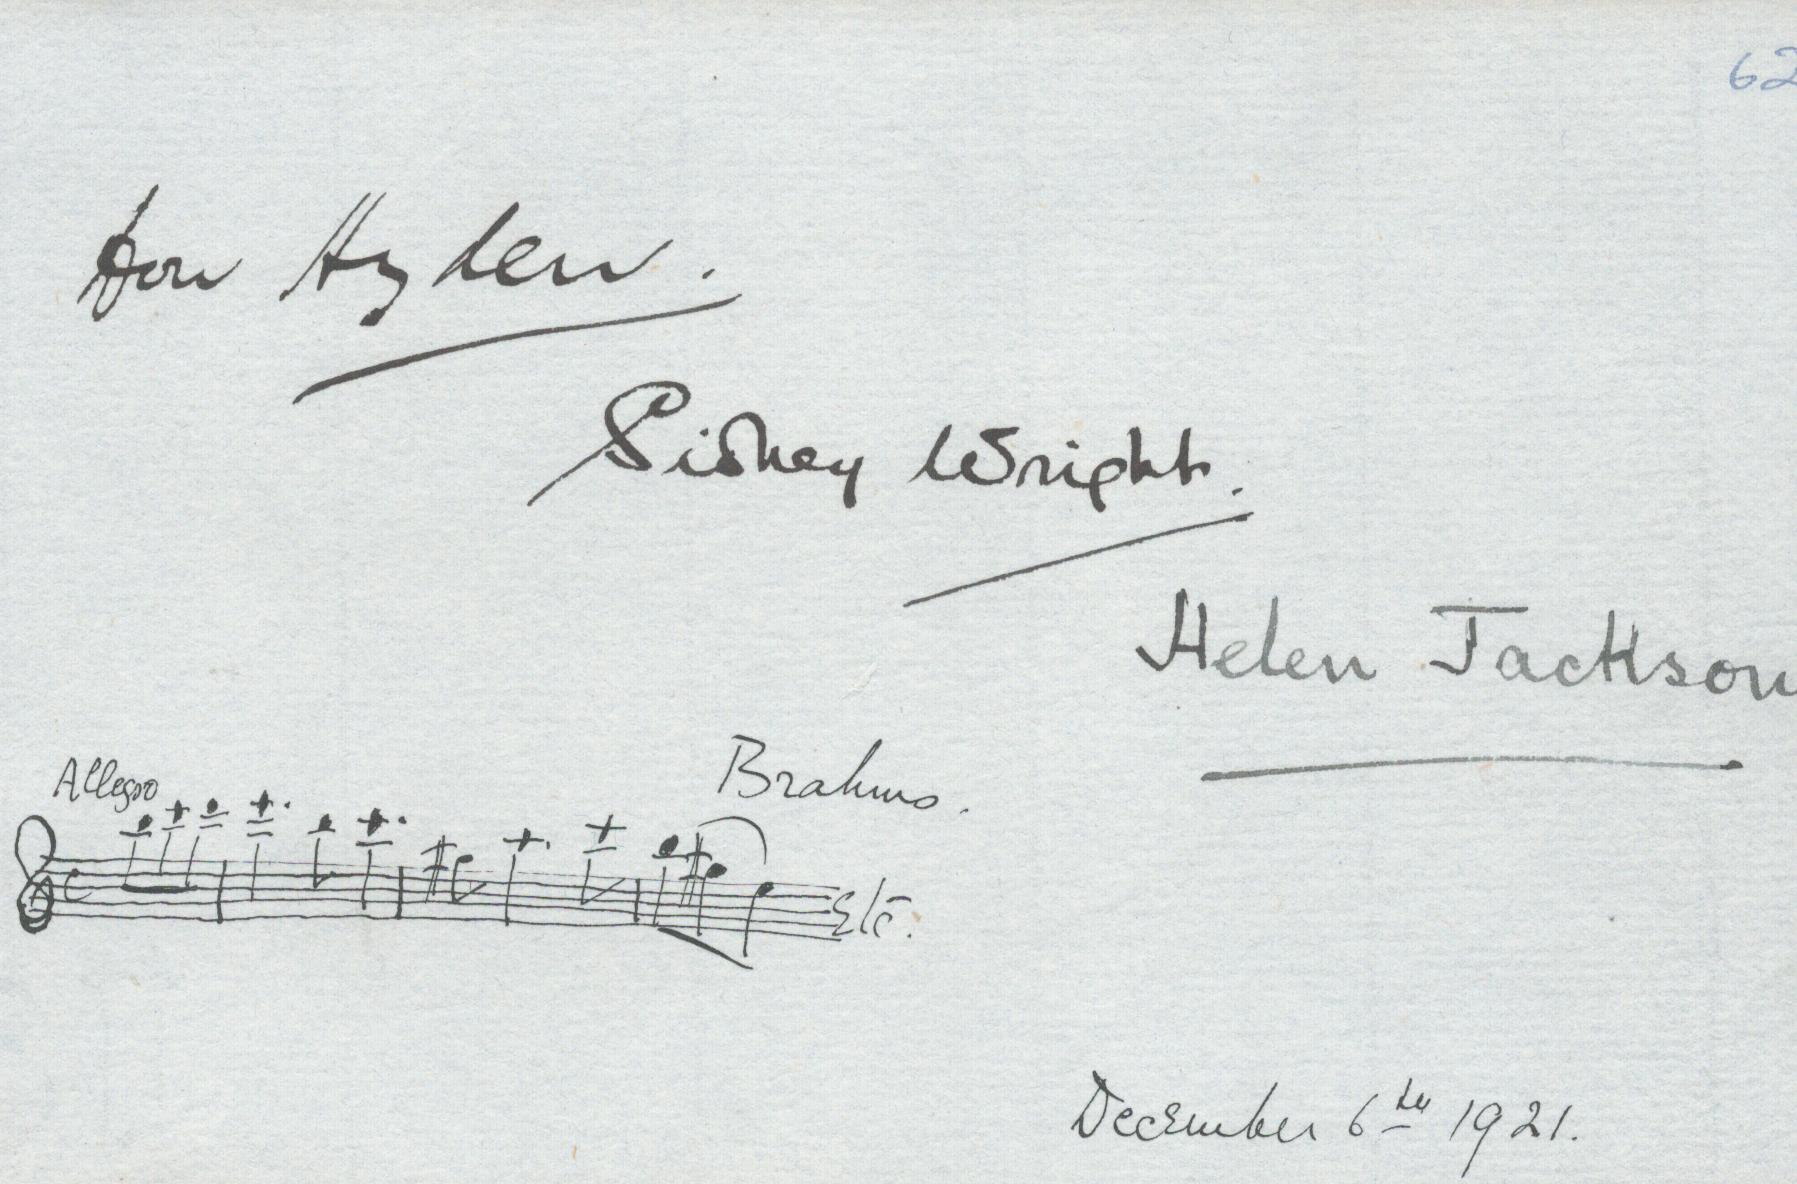 62
Don Hyden.
Sidney Wright.
Helen Jackson
Allegro
Brahms.
Etc.
December 6th 1921.